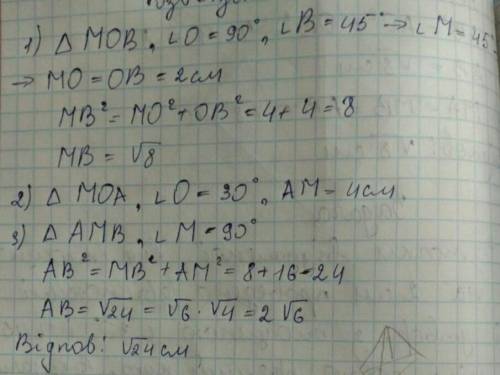 1) △ MOB, ∟O = 90°, ∟B = 45° → ∟M = 45
→ MO = OB = 2см
MB² = MO² + OB² = 4 + 4 = 8
MB = √8
2) △ MOA, ∟O = 30°, AM = 4см.
3) △ AMB, ∟M = 90°
AB² = MB² + AM² = 8 + 16 = 24
AB = √24 = √6 · √4 = 2√6
Відпов: √24см